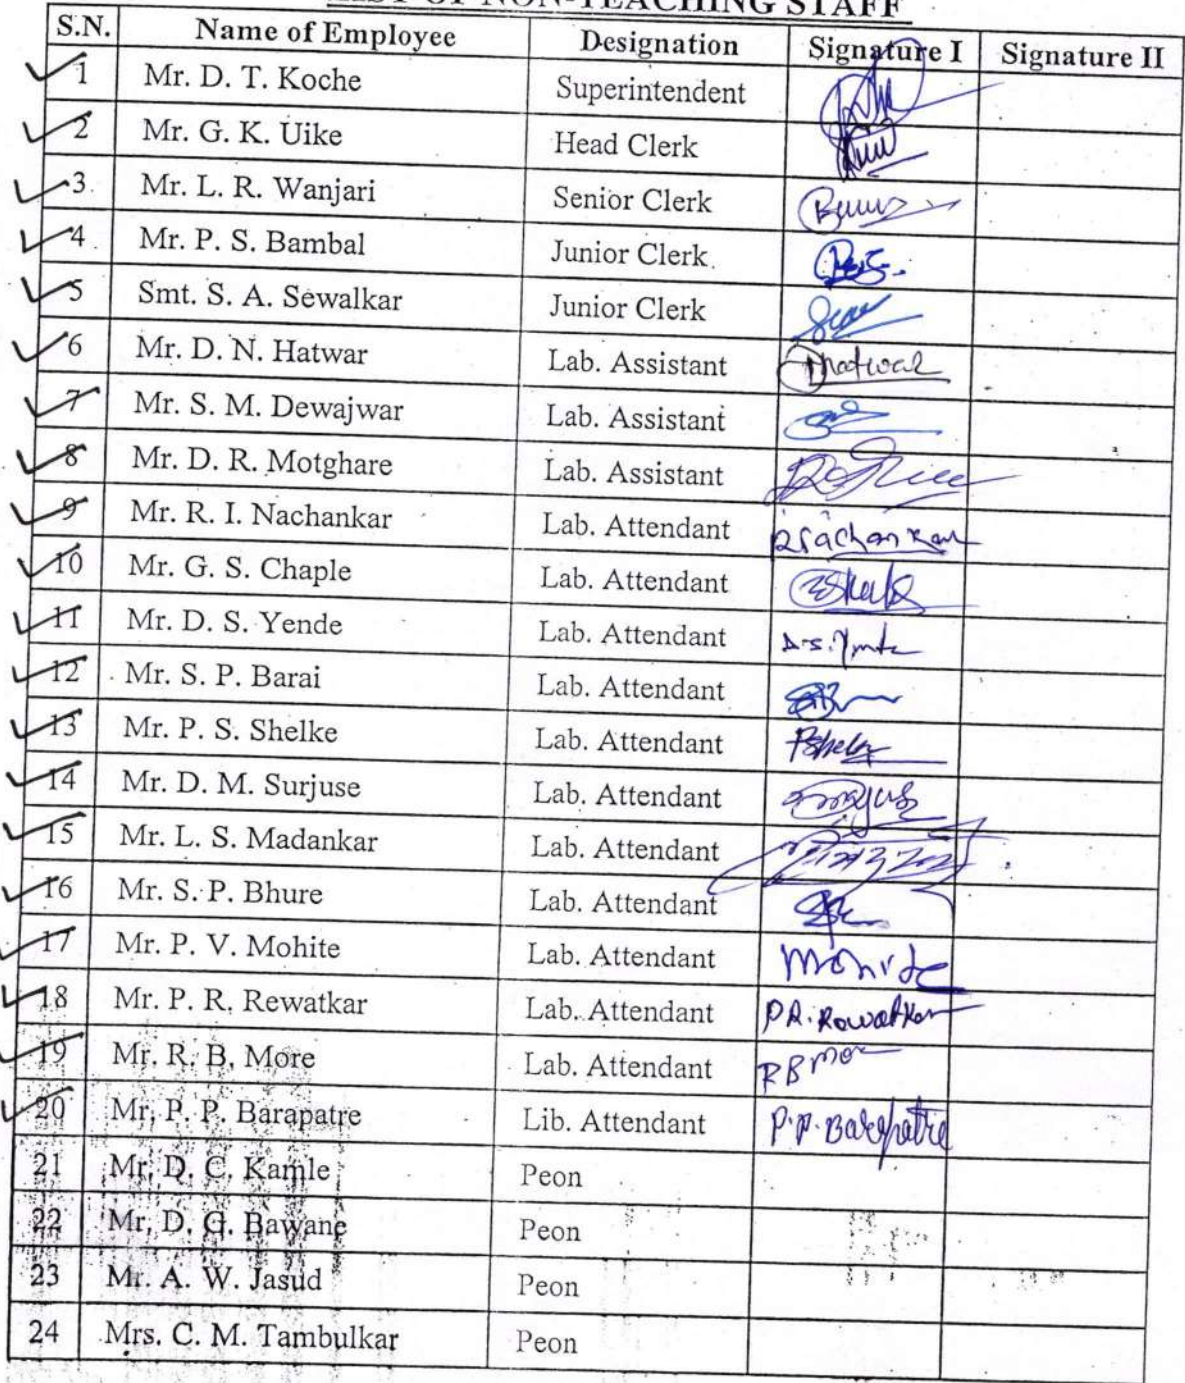 LIST OF NON-TEACHING STAFF
S.N. Name of Employee Designation Signature I Signature II
1 Mr. D. T. Koche Superintendent
2 Mr. G. K. Uike Head Clerk
3. Mr. L. R. Wanjari Senior Clerk
4 Mr. P. S. Bambal Junior Clerk
5 Smt. S. A. Sewalkar Junior Clerk
6 Mr. D. N. Hatwar Lab. Assistant Dhatwar
7 Mr. S. M. Dewajwar Lab. Assistant
8 Mr. D. R. Motghare Lab. Assistant
9 Mr. R. I. Nachankar Lab. Attendant
10 Mr. G. S. Chaple Lab. Attendant
11 Mr. D. S. Yende Lab. Attendant
12 Mr. S. P. Barai Lab. Attendant
13 Mr. P. S. Shelke Lab. Attendant
14 Mr. D. M. Surjuse Lab. Attendant
15 Mr. L. S. Madankar Lab. Attendant
16 Mr. S. P. Bhure Lab. Attendant
17 Mr. P. V. Mohite Lab. Attendant Mohite
18 Mr. P. R. Rewatkar Lab. Attendant P.R. Rewatkar
19 Mr. R. B. More Lab. Attendant R B More
20 Mr. P. P. Barapatre Lib. Attendant P.P. Barapatre
21 Mr. D. C. Kamle Peon
22 Mr. D. G. Bawane Peon
23 Mr. A. W. Jasud Peon
24 Mrs. C. M. Tambulkar Peon